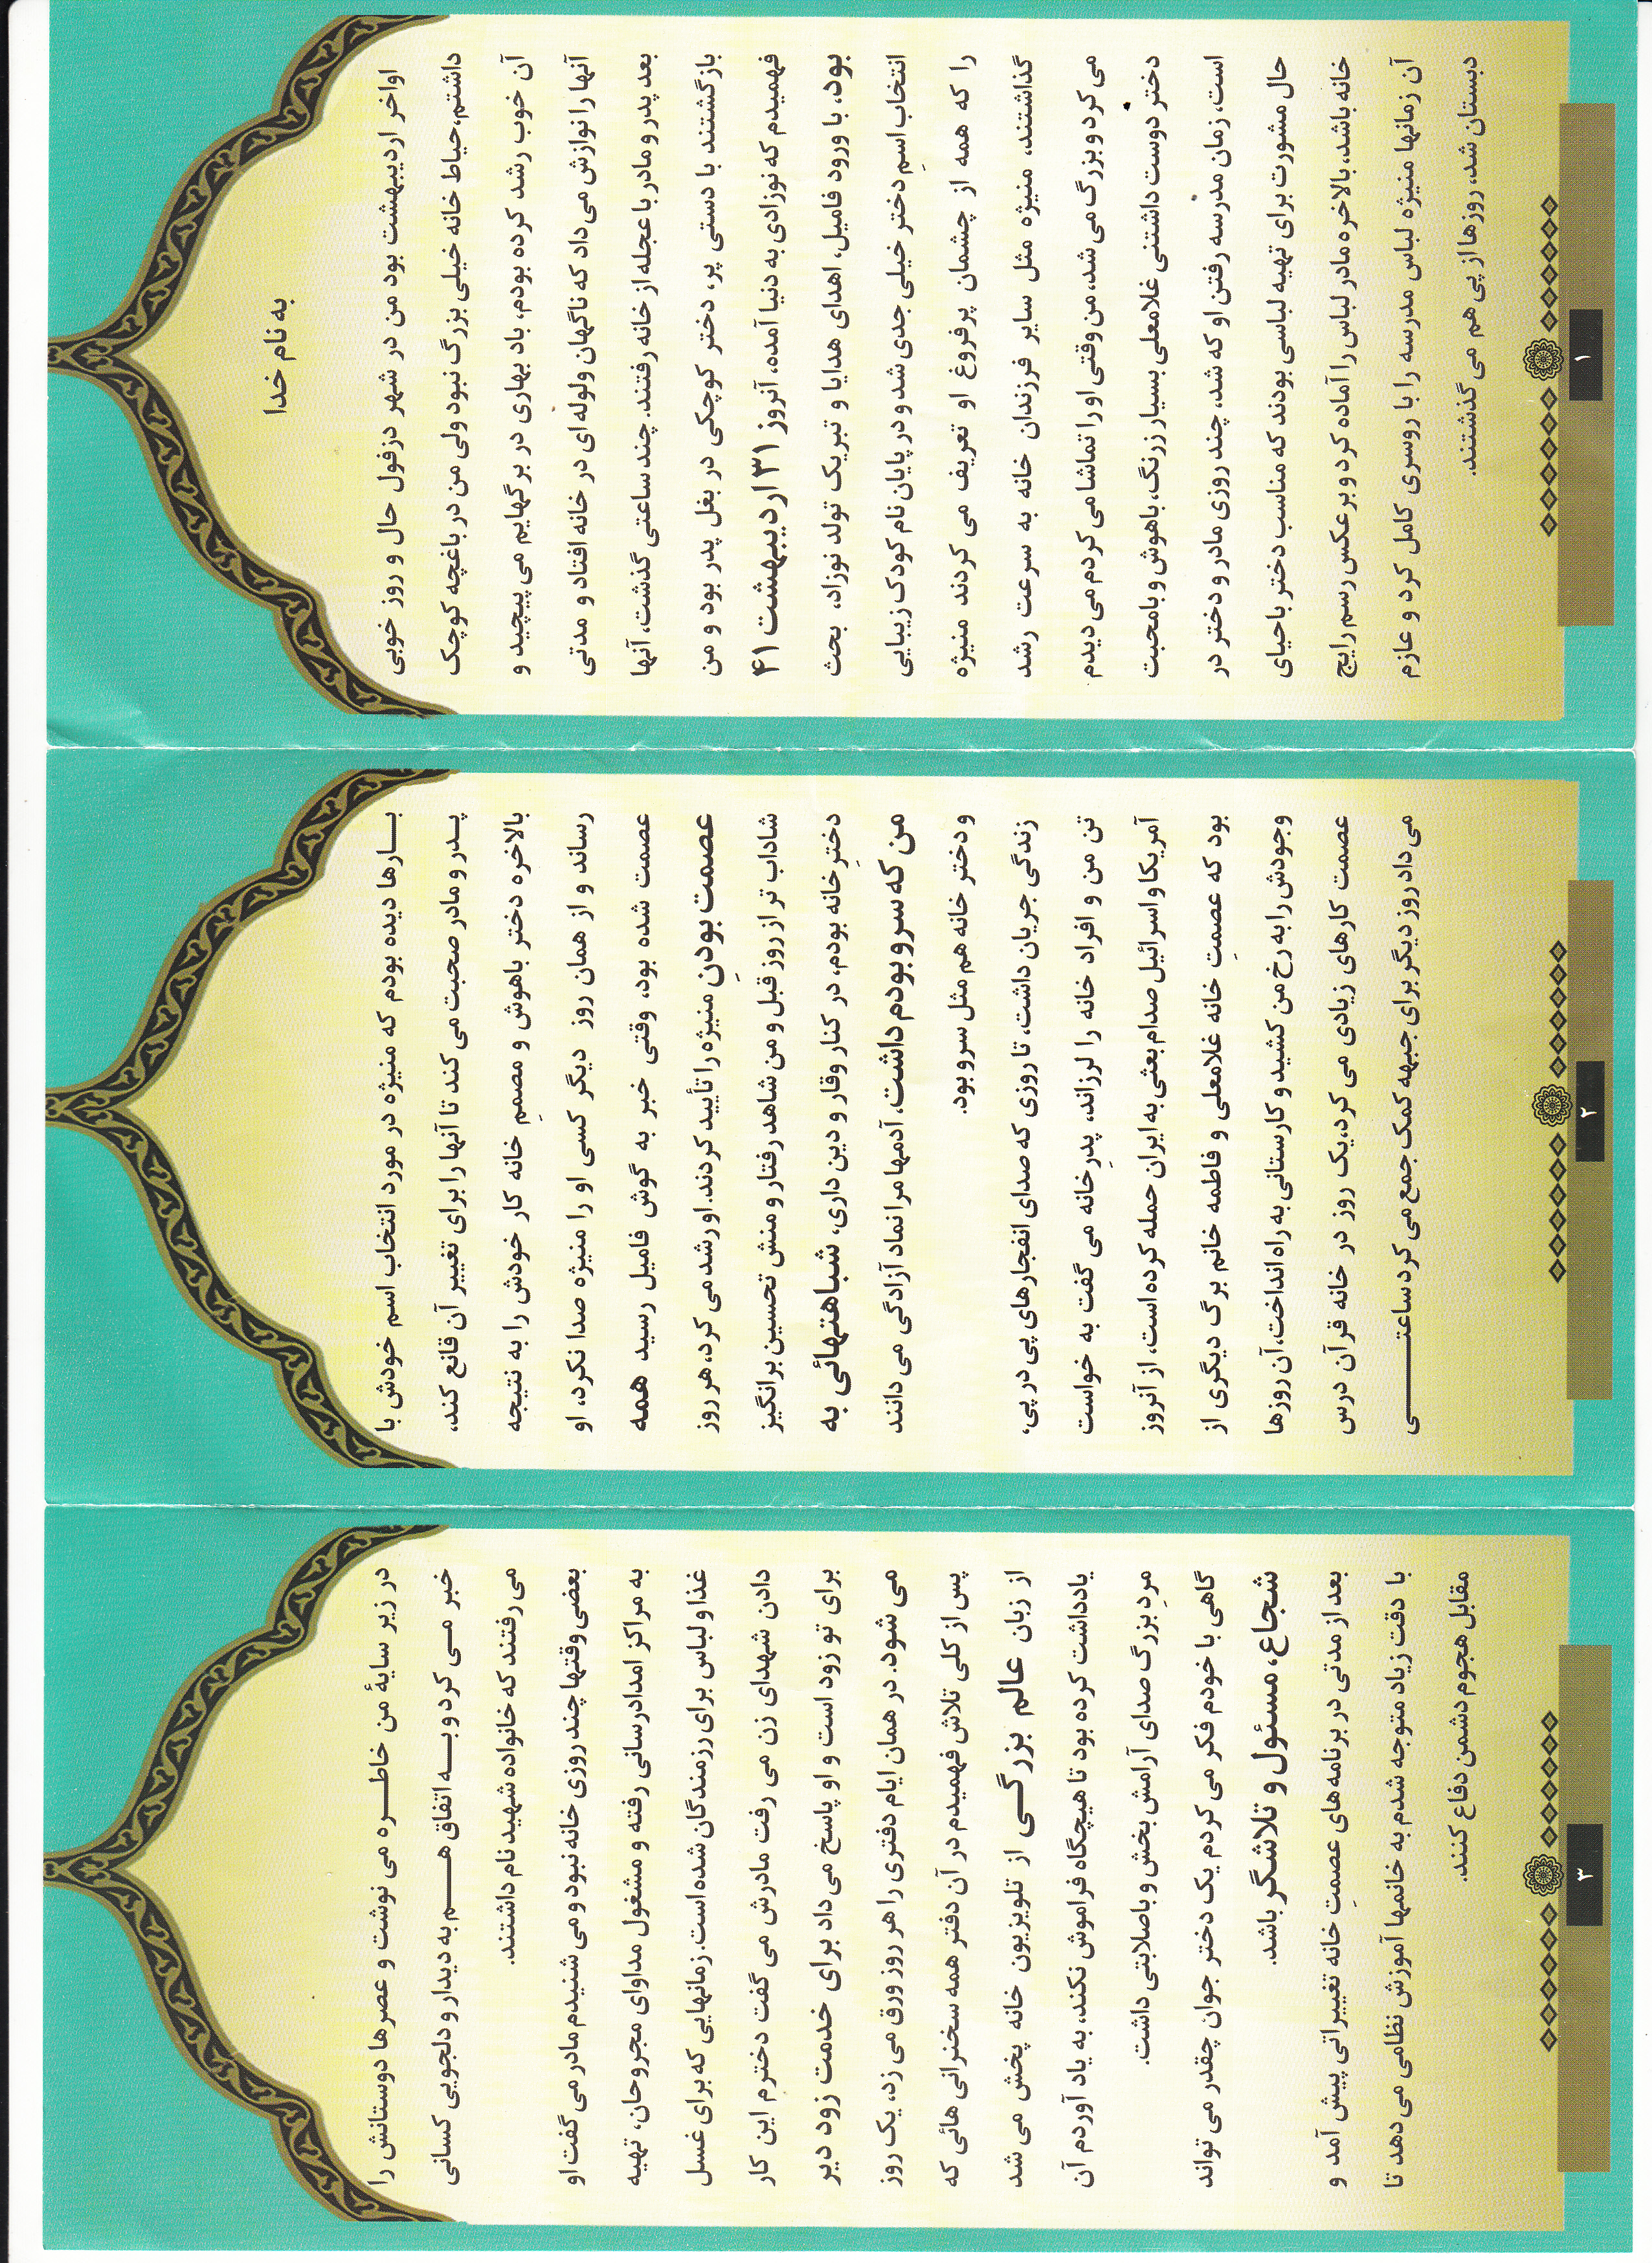 به نام خدا
اواخر اردیبهشت بود من در شهر دزفول حال و روز خوبی
داشتم، حیاط خانه خیلی بزرگ نبود ولی من در باغچه کوچک
آن خوب رشد کرده بودم، باد بهاری در برگهایم می پیچید و
آنها را نوازش می داد که ناگهان ولوله ای در خانه افتاد و مدتی
بعد پدر و مادر با عجله از خانه رفتند. چند ساعتی گذشت، آنها
بازگشتند با دستی پر، دختر کوچکی در بغل پدر بود و من
فهمیدم که نوزادی به دنیا آمده، آنروز ۳۱ اردیبهشت ۴۱
بود، با ورود فامیل، اهدای هدایا و تبریک تولد نوزاد، بحث
انتخاب اسمِ دختر خیلی جدی شد و در پایان نام کودک زیبایی
را که همه از چشمان پرفروغ او تعریف می کردند منیژه
گذاشتند، منیژه مثل سایر فرزندان خانه به سرعت رشد
می کرد و بزرگ می شد، من وقتی او را تماشا می کردم می دیدم
دختر دوست داشتنی غلامعلی بسیار زرنگ، باهوش و بامحبت
است، زمان مدرسه رفتن او که شد، چند روزی مادر و دختر در
حال مشورت برای تهیه لباسی بودند که مناسب دختر باحیای
خانه باشد، بالاخره مادر لباس را آماده کرد و برعکس رسم رایج
آن زمانها منیژه لباس مدرسه را با روسری کامل کرد و عازم
دبستان شد، روزها از پی هم می گذشتند.
۱
بارها دیده بودم که منیژه در مورد انتخاب اسم خودش با
پدر و مادر صحبت می کند تا آنها را برای تغییر آن قانع کند،
بالاخره دختر باهوش و مصممِ خانه کار خودش را به نتیجه
رساند و از همان روز دیگر کسی او را منیژه صدا نکرد، او
عصمت شده بود، وقتی خبر به گوش فامیل رسید همه
عصمت بودنِ منیژه را تأیید کردند. او رشد می کرد، هر روز
شاداب تر از روز قبل و من شاهد رفتار و منش تحسین برانگیز
دخترِ خانه بودم، در کنار وقار و دین داری، شباهتهائی به
من که سرو بودم داشت، آدمها مرا نماد آزادگی می دانند
و دختر خانه هم مثل سرو بود.
زندگی جریان داشت، تا روزی که صدای انفجارهای پی در پی،
تن من و افراد خانه را لرزاند، پدرِ خانه می گفت به خواست
آمریکا و اسرائیل صدام بعثی به ایران حمله کرده است، از آنروز
بود که عصمتِ خانه غلامعلی و فاطمه خانم برگ دیگری از
وجودش را به رخ من کشید و کارستانی به راه انداخت، آن روزها
عصمت کارهای زیادی می کرد، یک روز در خانه قرآن درس
می داد روز دیگر برای جبهه کمک جمع می کرد ساعتی
۲
در زیر سایهٔ من خاطره می نوشت و عصرها دوستانش را
خبر می کرد و به اتفاق هم به دیدار و دلجویی کسانی
می رفتند که خانواده شهید نام داشتند.
بعضی وقتها چند روزی خانه نبود و می شنیدم مادر می گفت او
به مراکز امدادرسانی رفته و مشغول مداوای مجروحان، تهیه
غذا و لباس برای رزمندگان شده است. زمانهایی که برای غسل
دادن شهدای زن می رفت مادرش می گفت دخترم این کار
برای تو زود است و او پاسخ می داد برای خدمت زود دیر
می شود. در همان ایام دفتری را هر روز ورق می زد، یک روز
پس از کلی تلاش فهمیدم در آن دفتر همه سخنرانی هائی که
از زبان عالم بزرگی از تلویزیون خانه پخش می شد
یادداشت کرده بود تا هیچگاه فراموش نکند، به یاد آوردم آن
مردِ بزرگ صدای آرامش بخش و باصلابتی داشت.
گاهی با خودم فکر می کردم یک دختر جوان چقدر می تواند
شجاع، مسئول و تلاشگر باشد.
بعد از مدتی در برنامه های عصمتِ خانه تغییراتی پیش آمد و
با دقت زیاد متوجه شدم به خانمها آموزش نظامی می دهد تا
مقابل هجوم دشمن دفاع کنند.
۳